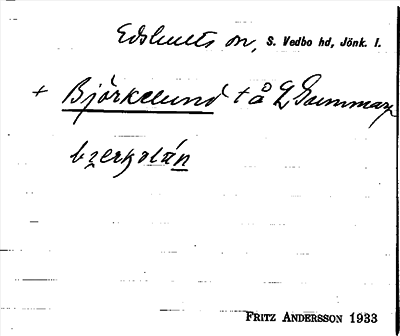 Edshults sn, S. Vedbo hd, Jönk. l.
+ Björkelund t å L Gammarp
FRITZ ANDERSSON 1933